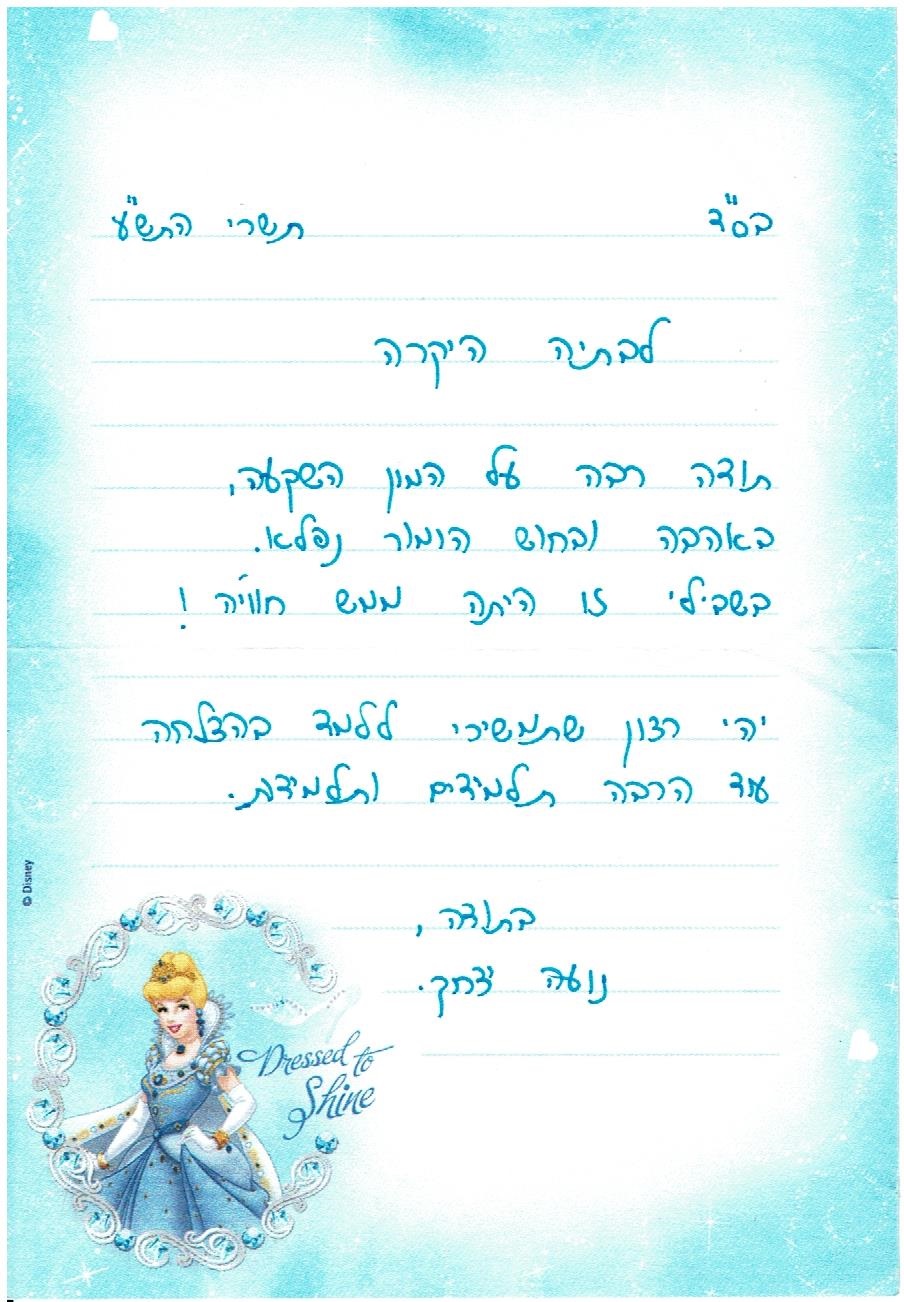 בס"ד תשרי התש"ע
לבתיה היקרה
תודה רבה על המון השקעה,
באהבה ובחוש הומור נפלא.
בשבילי זו היתה ממש חוויה!
יהי רצון שתמשיכי ללמד בהצלחה
עוד הרבה תלמידים ותלמידות.
בתודה,
נועה יצחק.
© Disney
Dressed to
Shine